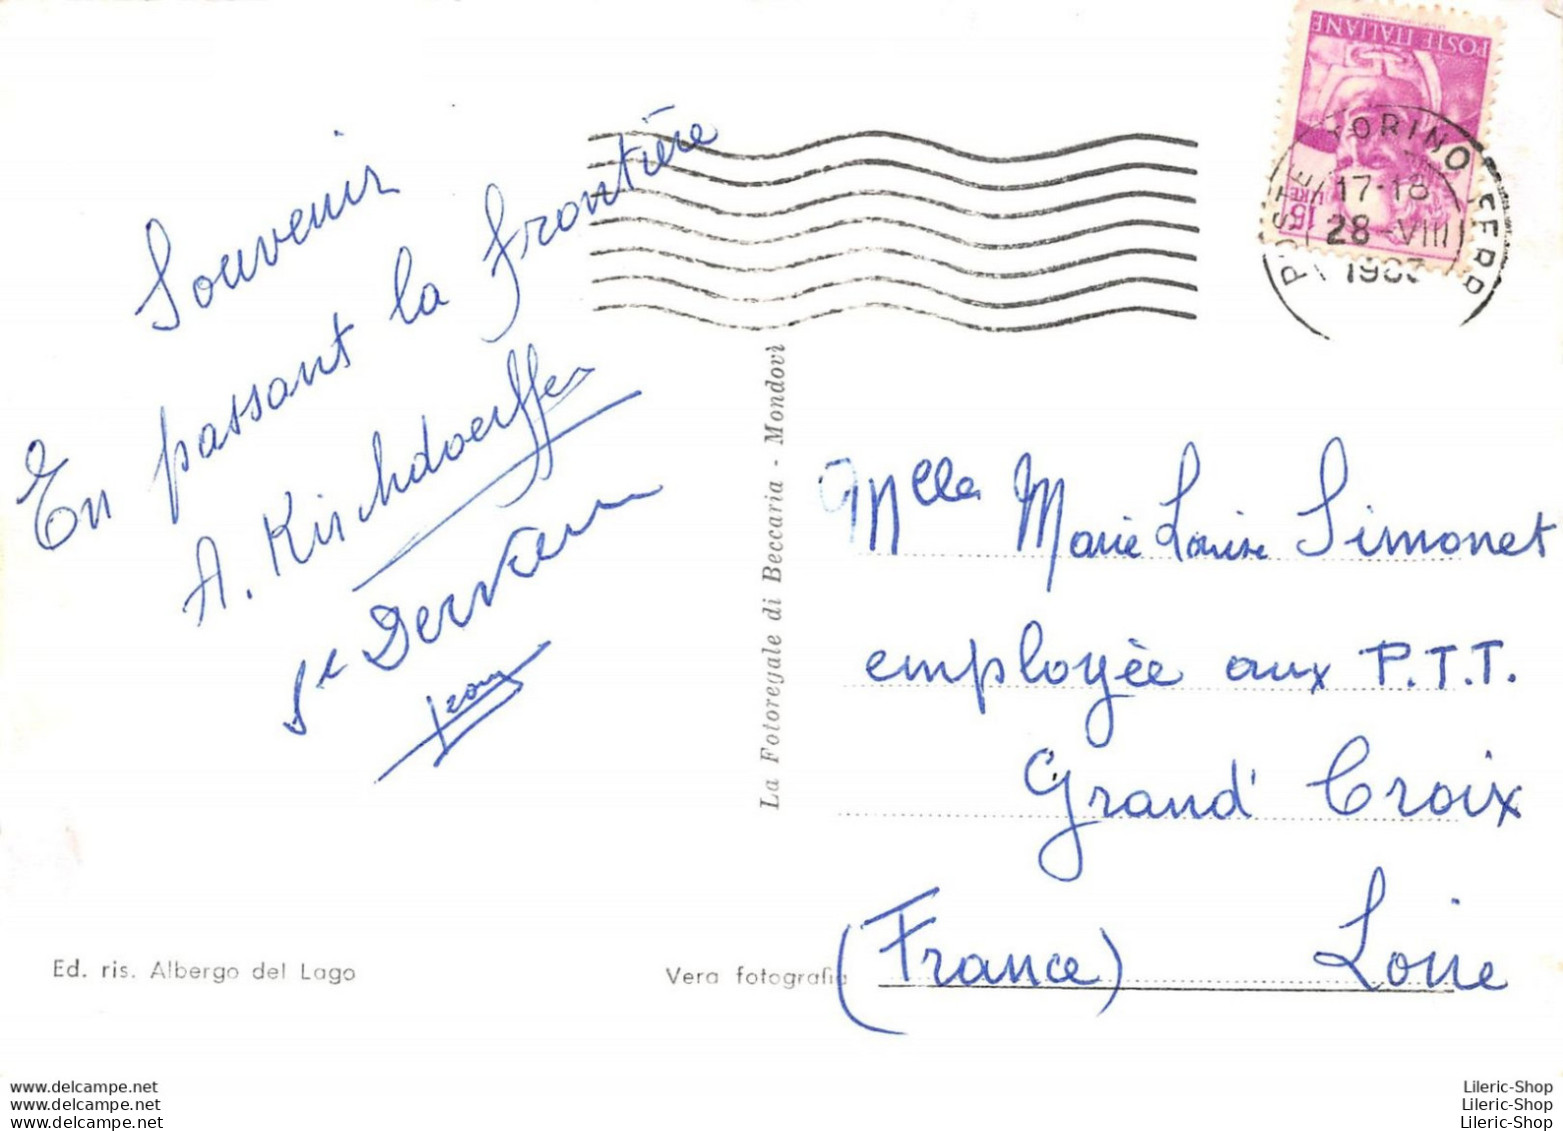 Souvenir
En passant la frontière
A. Kirchdoerffer
POSTE ITALIANE
15 LIRE
POSTE TORINO FERR
17-18
28 VIII
La Fotoregale di Beccaria - Mondovì
Mlle Marie Louise Simonet
employée aux P.T.T.
Grand' Croix
(France) Loire
Ed. ris. Albergo del Lago
Vera fotografia
www.delcampe.net
www.delcampe.net
www.delcampe.net
Lileric-Shop
Lileric-Shop
Lileric-Shop